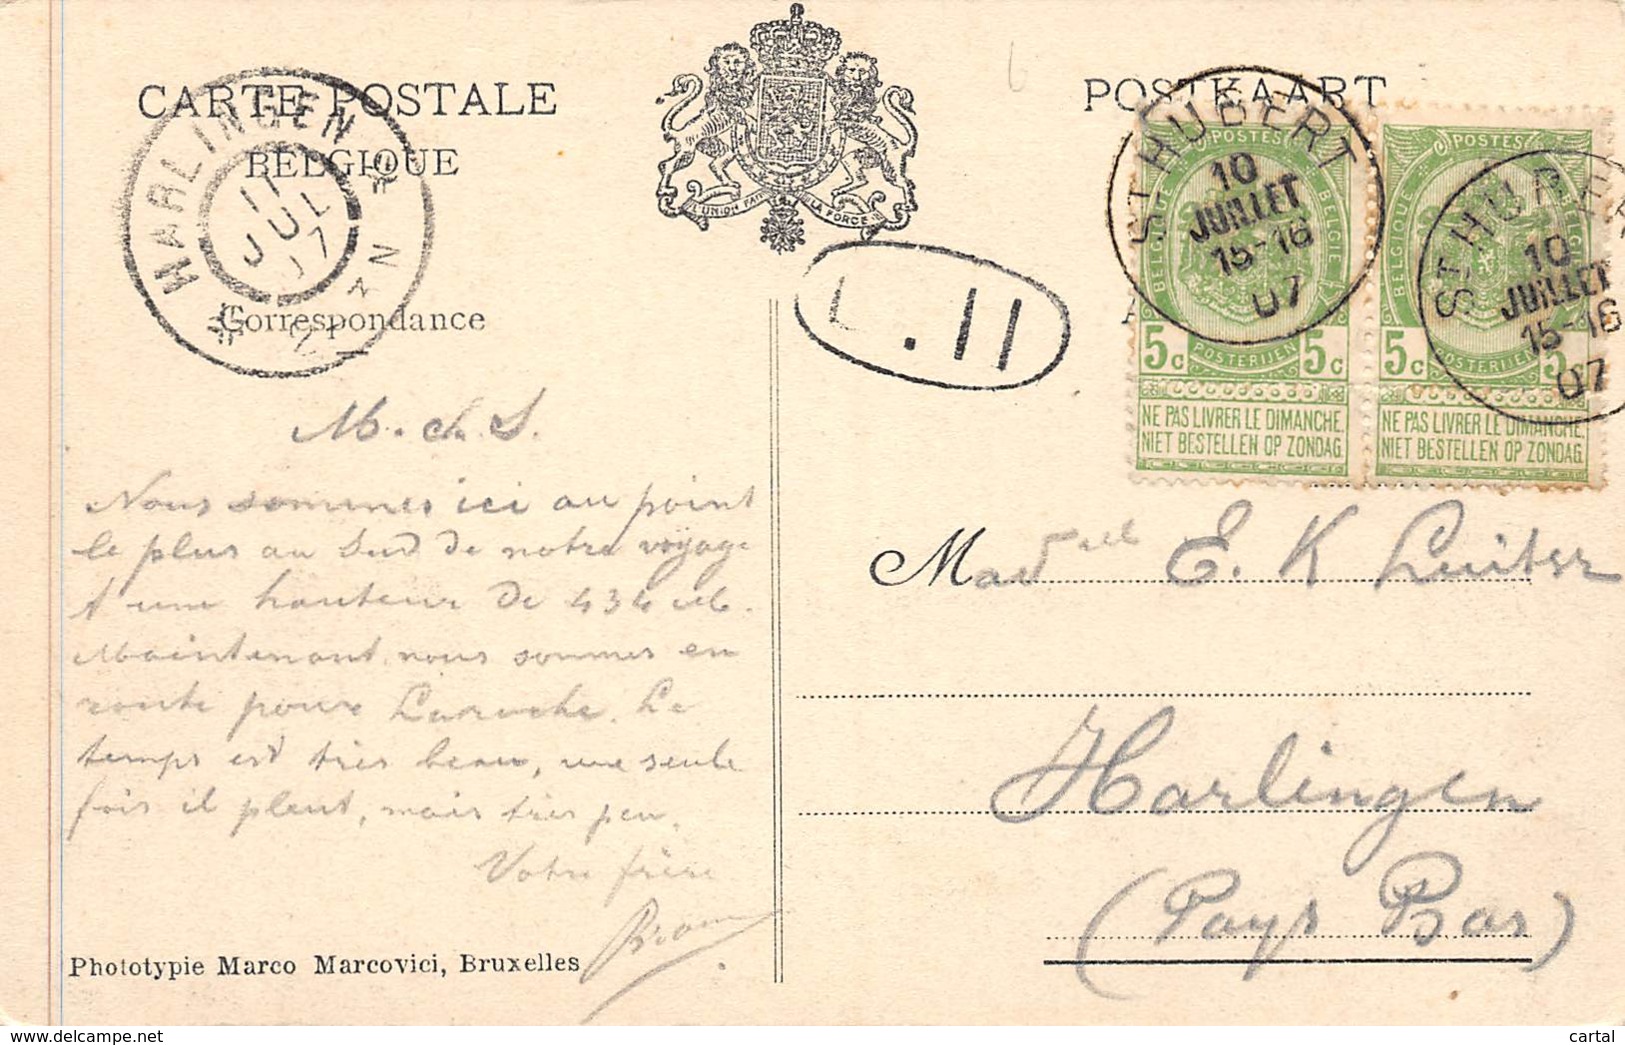 CARTE POSTALE
BELGIQUE
POSTKAART
L'UNION FAIT LA FORCE
HARLINGEN
11
JUL
07
Correspondance
L. 11
ST HUBERT
10
JUILLET
15-16
07
ST HUBERT
10
JUILLET
15-16
07
POSTES
BELGIQUE BELGIË
5c POSTERIJEN 5c
NE PAS LIVRER LE DIMANCHE.
NIET BESTELLEN OP ZONDAG.
POSTES
BELGIQUE BELGIË
5c POSTERIJEN 5c
NE PAS LIVRER LE DIMANCHE.
NIET BESTELLEN OP ZONDAG.
M. ch. S.
Nous sommes ici au point
le plus au Sud de notre voyage
A une hauteur de 434 M.
Maintenant nous sommes en
route pour Laroche. Le
temps est très beau, une seule
fois il pleut, mais très peu.
Votre frère
Phototypie Marco Marcovici, Bruxelles
Madelle E. K Luitsz
Harlingen
(Pays Bas)
cartal
delcampe.net